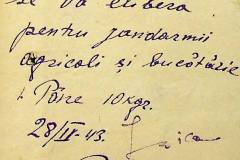 se va elibera
pentru jandarmii
agricoli și bucătărie
1. Pâine 10 kgr.
28/IV-43.